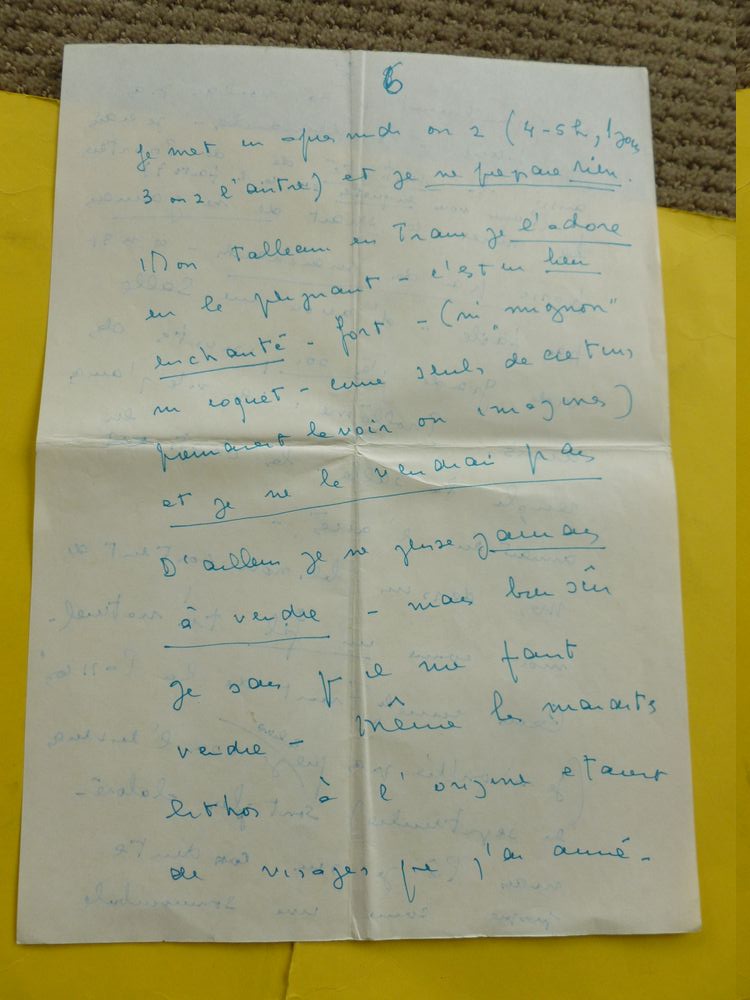 6
je met un apres midi ou 2 (4-5h, 1 jour
3 ou 2 l'autre) et je ne prepare rien.
Mon Tableau en Train je l'adore
en le peignant - c'est un lieu
enchanté - fort - (ni "mignon"
ni coquet - comme seuls de cretins
pourraient le voir ou imaginer)
et je ne le vendrai pas
D'ailleurs je ne pense jamais
à vendre - mais bien sûr
je sais qu'il me faut
vendre - même les maudits
lithos à l'origine etaient
de visages que j'ai aimé -